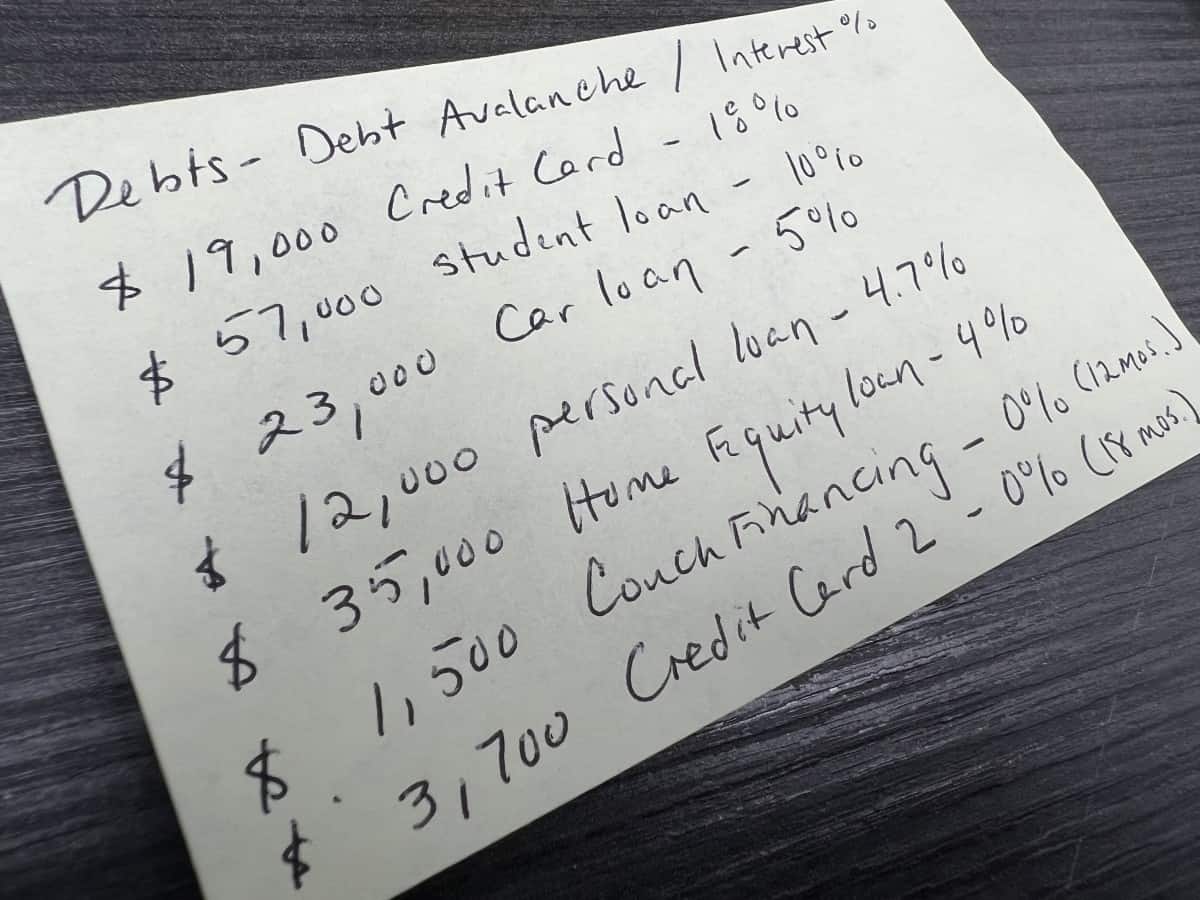 Debts - Debt Avalanche / Interest %
$ 19,000 Credit Card - 18%
$ 57,000 student loan - 10%
$ 23,000 Car loan - 5%
$ 12,000 personal loan - 4.7%
$ 35,000 Home Equity loan - 4%
$ 1,500 Couch Financing - 0% (12 mos.)
$ 3,700 Credit Card 2 - 0% (18 mos.)